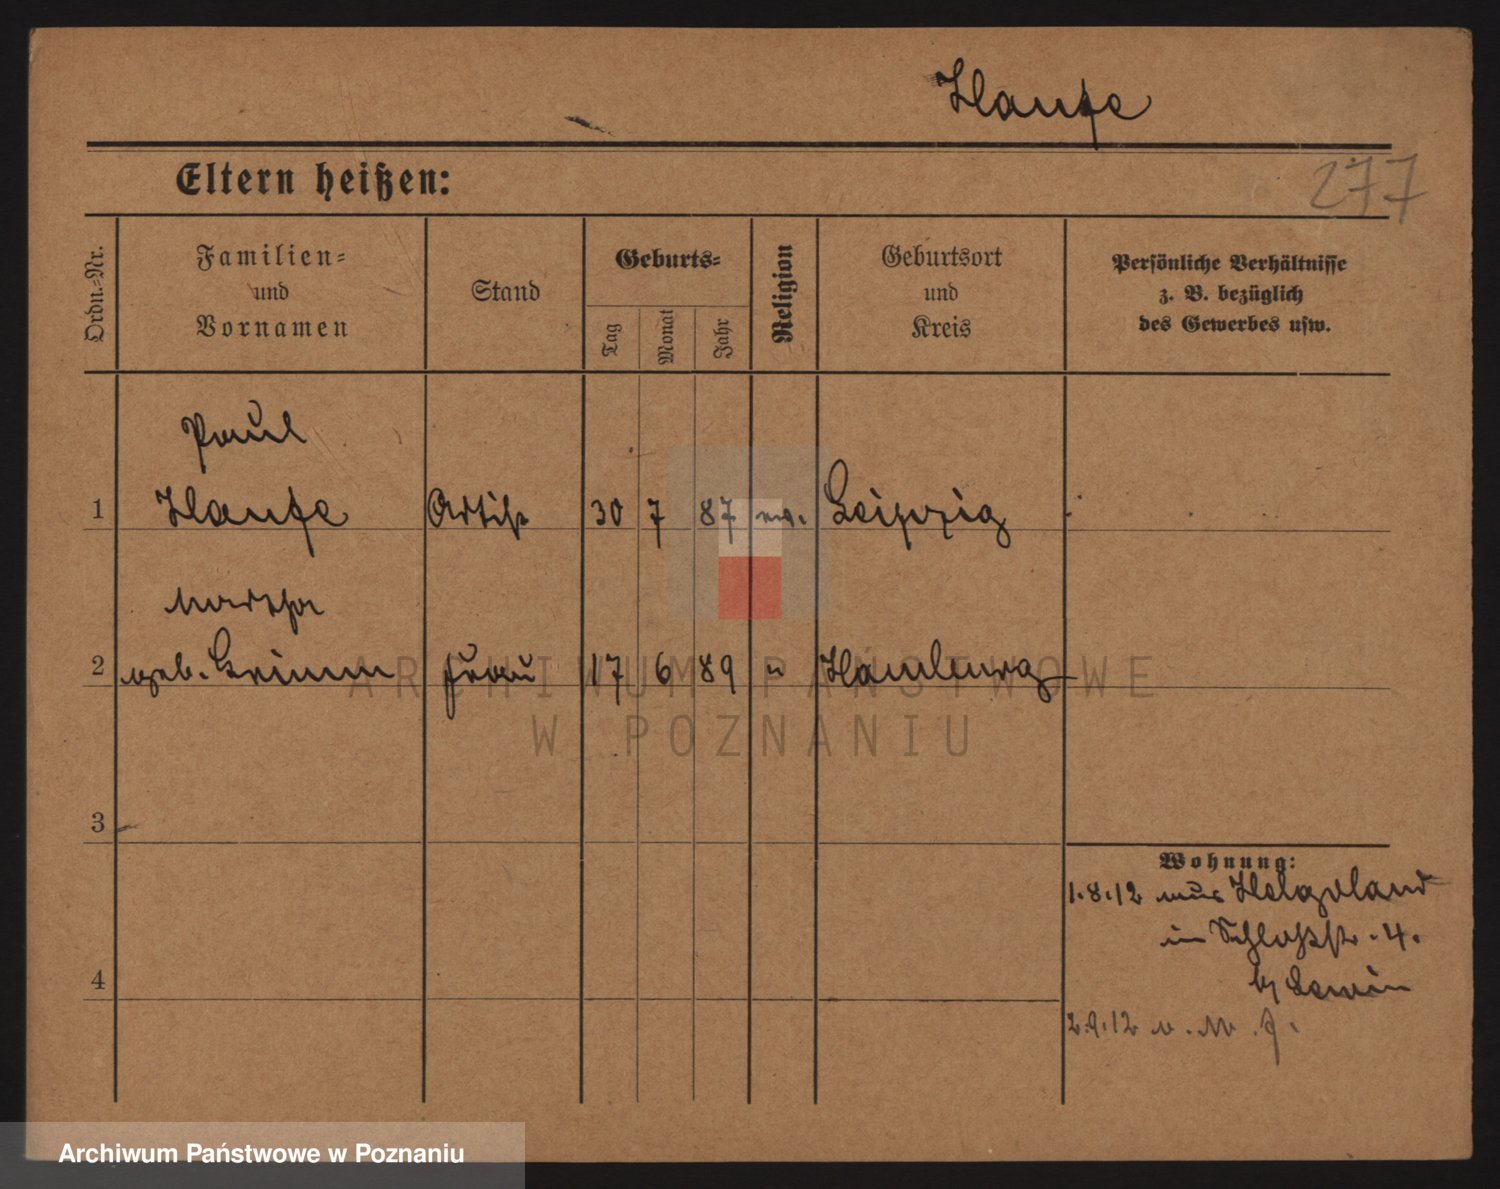 Haufe
277
Eltern heißen:
Ordn.-Nr.
Familien-
und
Vornamen
Stand
Geburts-
Tag
Monat
Jahr
Religion
Geburtsort
und
Kreis
Persönliche Verhältnisse
z. B. bezüglich
des Gewerbes usw.
Paul
1 Haufe Artist 30 7 87 Leipzig
Martha
2 geb. Grimm Frau 17 6 89 " Hamburg
3
4
Wohnung:
1.8.12 aus Helgoland
in Schloßstr. 4.
b/ Lewin
2.9.12
ARCHIWUM PAŃSTWOWE
W POZNANIU
Archiwum Państwowe w Poznaniu